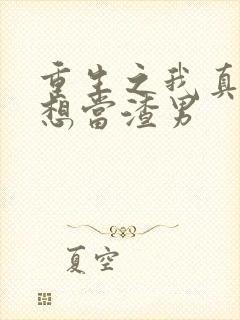 重生之我真
想當渣男
夏空